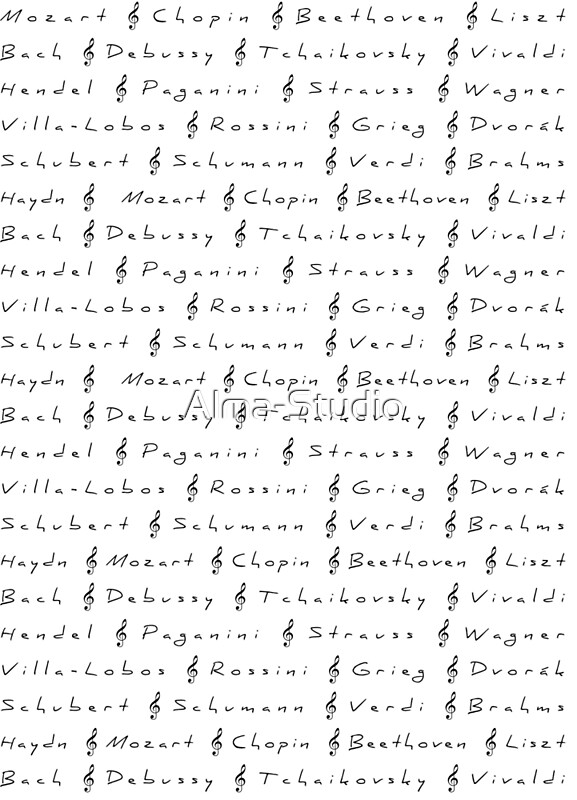 Mozart 𝄞 Chopin 𝄞 Beethoven 𝄞 Liszt
Bach 𝄞 Debussy 𝄞 Tchaikovsky 𝄞 Vivaldi
Hendel 𝄞 Paganini 𝄞 Strauss 𝄞 Wagner
Villa-Lobos 𝄞 Rossini 𝄞 Grieg 𝄞 Dvorák
Schubert 𝄞 Schumann 𝄞 Verdi 𝄞 Brahms
Haydn 𝄞 Mozart 𝄞 Chopin 𝄞 Beethoven 𝄞 Liszt
Bach 𝄞 Debussy 𝄞 Tchaikovsky 𝄞 Vivaldi
Hendel 𝄞 Paganini 𝄞 Strauss 𝄞 Wagner
Villa-Lobos 𝄞 Rossini 𝄞 Grieg 𝄞 Dvorák
Schubert 𝄞 Schumann 𝄞 Verdi 𝄞 Brahms
Haydn 𝄞 Mozart 𝄞 Chopin 𝄞 Beethoven 𝄞 Liszt
Alma-Studio
Bach 𝄞 Debussy 𝄞 Tchaikovsky 𝄞 Vivaldi
Hendel 𝄞 Paganini 𝄞 Strauss 𝄞 Wagner
Villa-Lobos 𝄞 Rossini 𝄞 Grieg 𝄞 Dvorák
Schubert 𝄞 Schumann 𝄞 Verdi 𝄞 Brahms
Haydn 𝄞 Mozart 𝄞 Chopin 𝄞 Beethoven 𝄞 Liszt
Bach 𝄞 Debussy 𝄞 Tchaikovsky 𝄞 Vivaldi
Hendel 𝄞 Paganini 𝄞 Strauss 𝄞 Wagner
Villa-Lobos 𝄞 Rossini 𝄞 Grieg 𝄞 Dvorák
Schubert 𝄞 Schumann 𝄞 Verdi 𝄞 Brahms
Haydn 𝄞 Mozart 𝄞 Chopin 𝄞 Beethoven 𝄞 Liszt
Bach 𝄞 Debussy 𝄞 Tchaikovsky 𝄞 Vivaldi